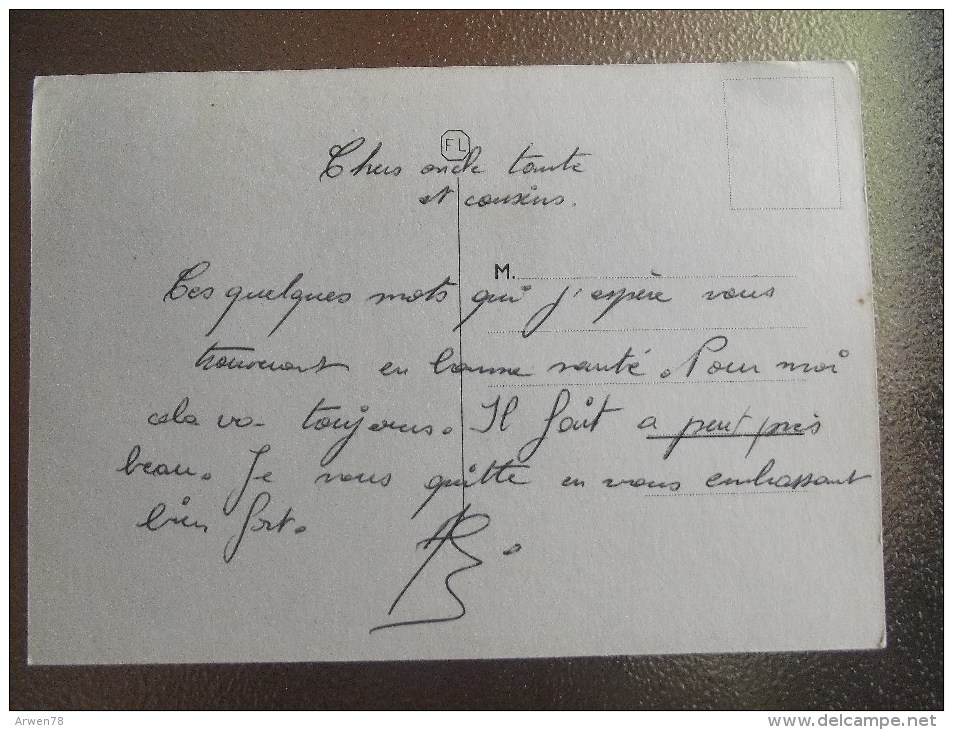 FL
Chers oncle tante
et cousins.
M.
Ces quelques mots qui j'espère vous
trouveront en bonne santé. Pour moi
cela va toujours. Il fait a peut près
beau. Je vous quitte en vous embrassant
bien fort.
Arwen78
www.delcampe.net